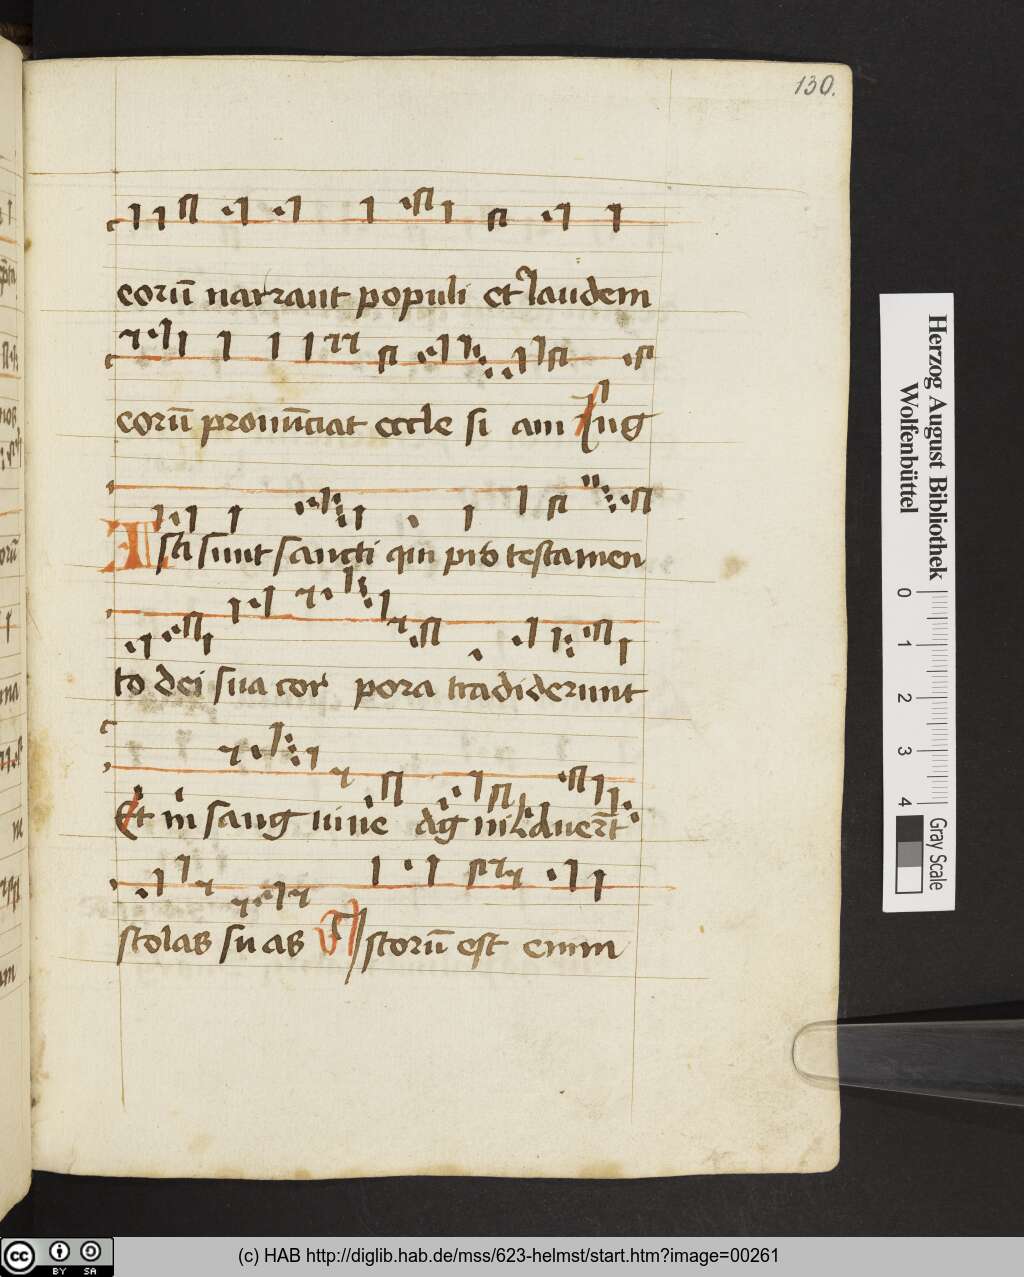 130.
eorū narrant populi et laudem
eorū pronūciat eccle si am Iug
Isti sunt sancti qui pro testamen
to dei sua cor pora tradiderunt
Et in sang uine ag ni lauerūt
stolas su as Istorū est enim
Herzog August Bibliothek
Wolfenbüttel
0 1 2 3 4
Gray Scale
cc BY SA
(c) HAB http://diglib.hab.de/mss/623-helmst/start.htm?image=00261